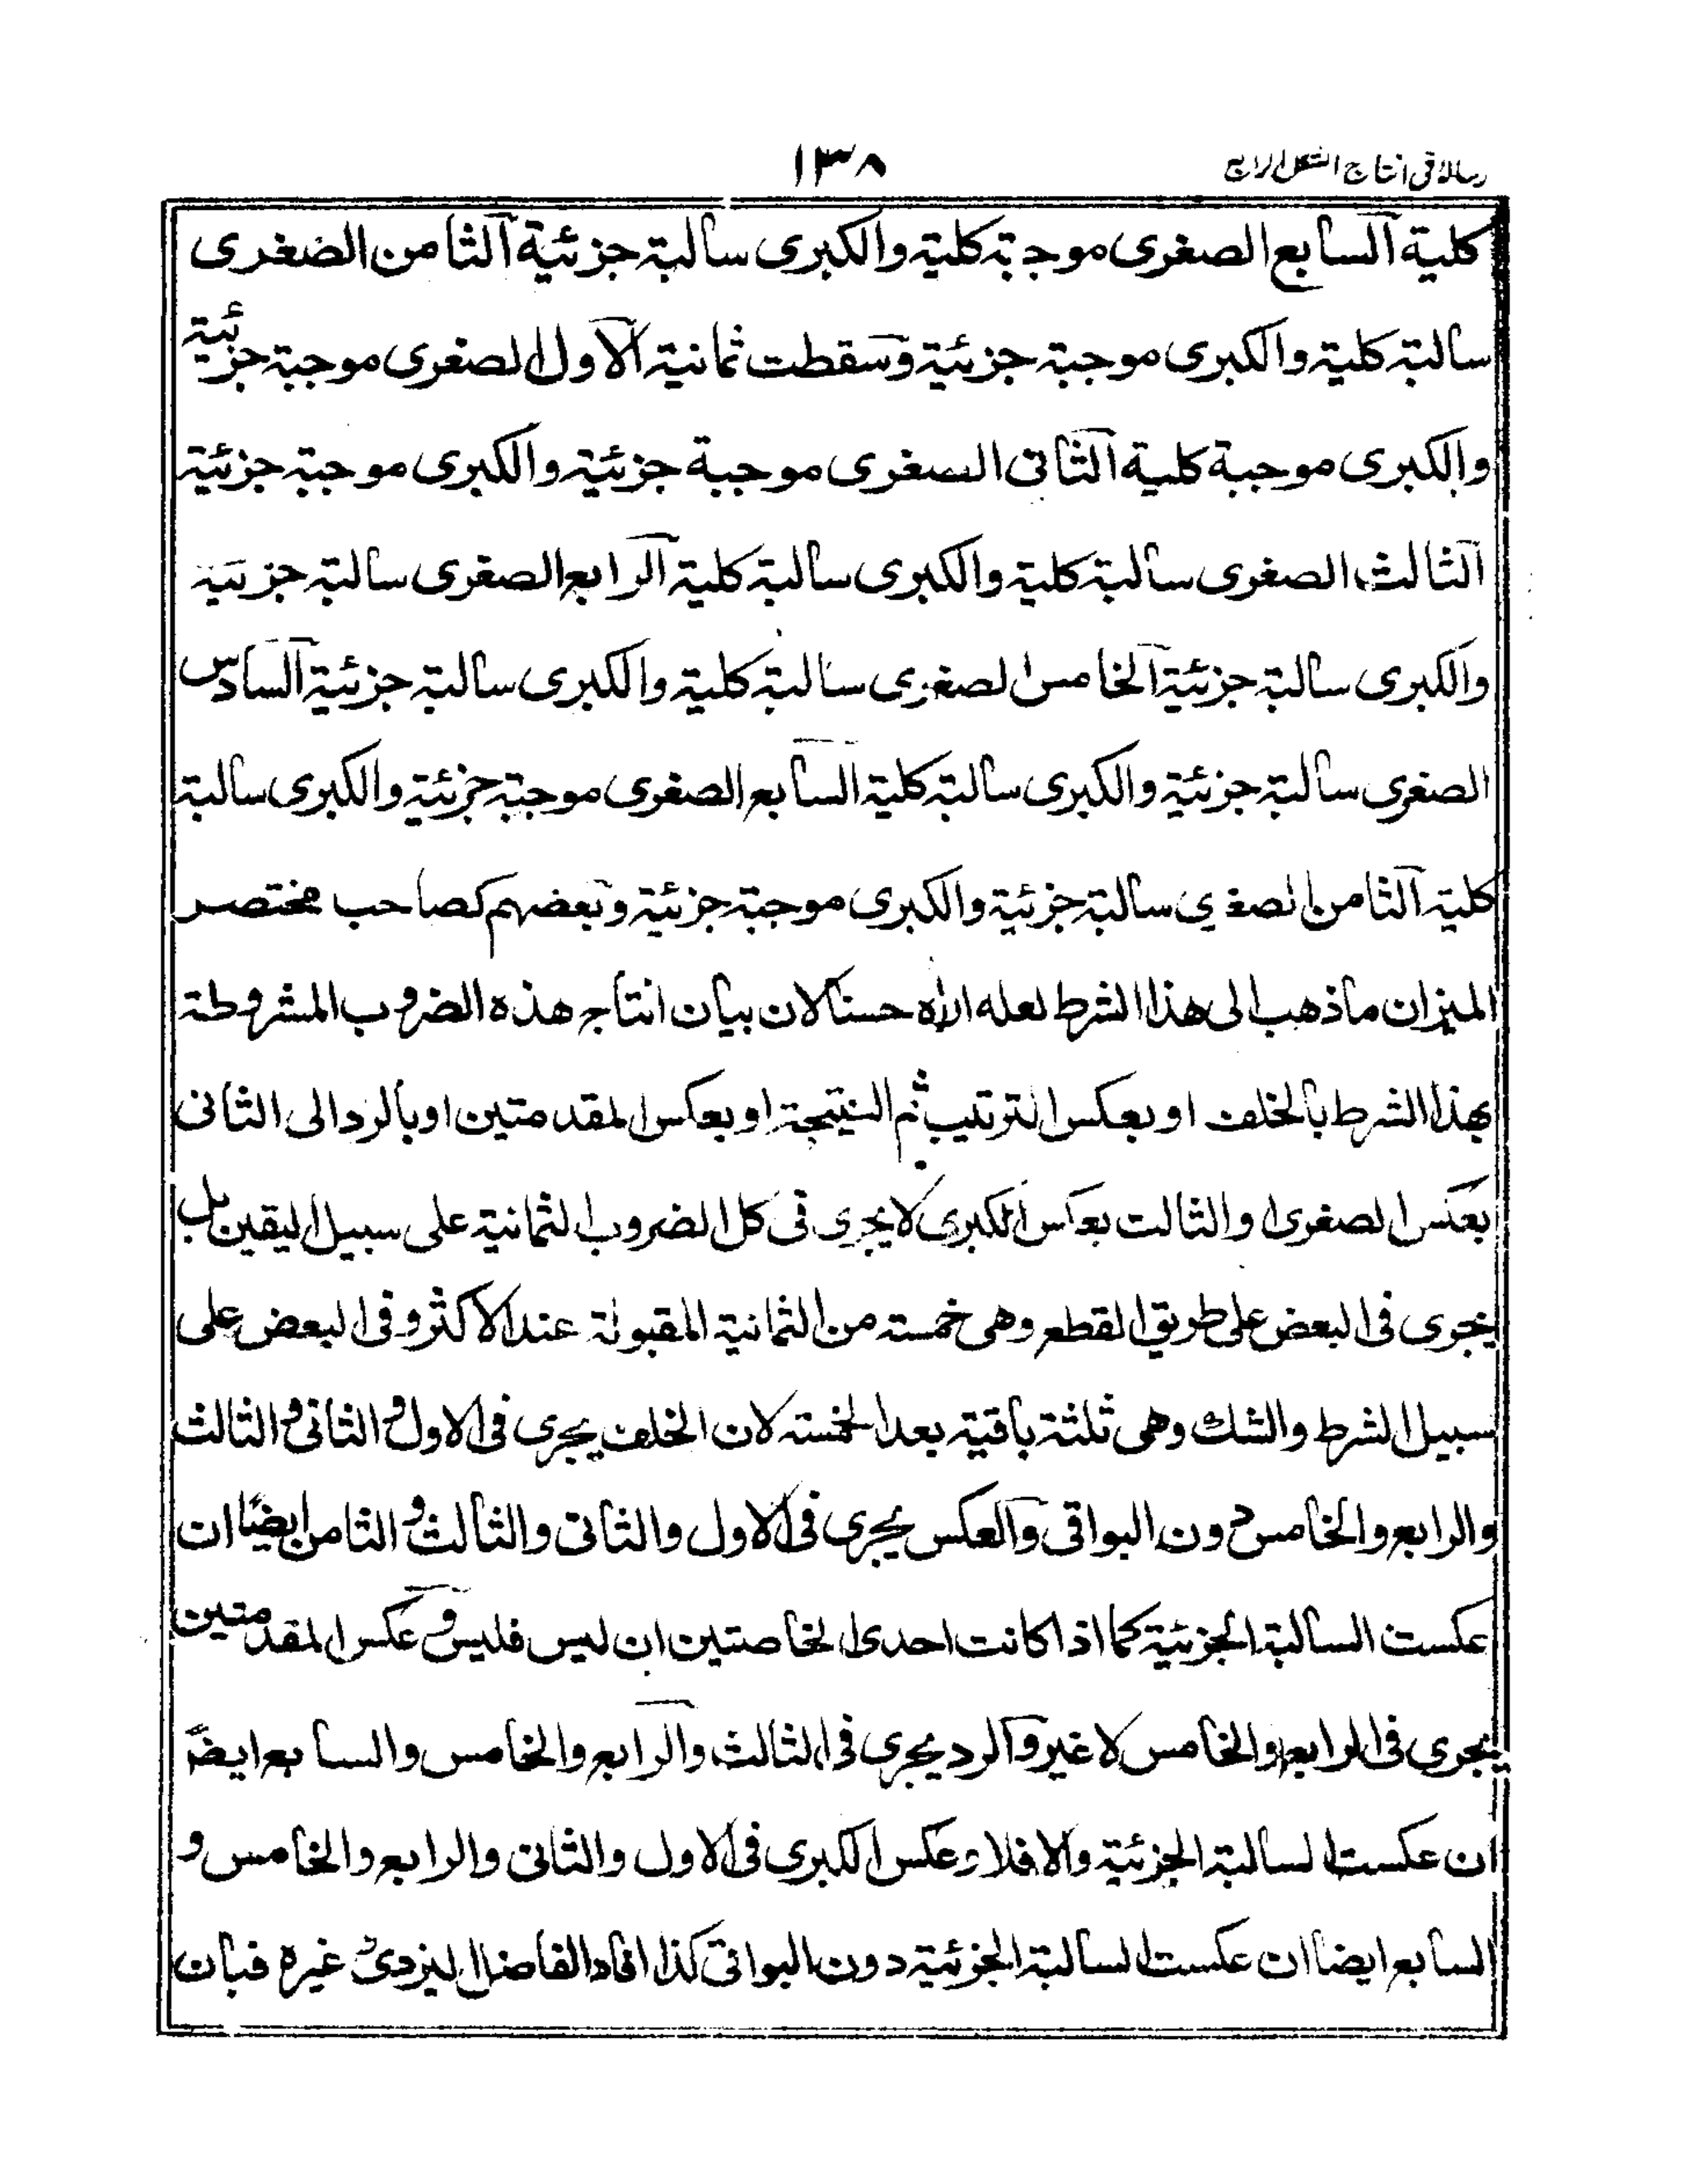 رسالة في انتاج الشكل الرابع
١٣٨
كلية السابع الصغرى موجبة كلية والكبرى سالبة جزئية الثامن الصغرى
سالبة كلية والكبرى موجبة جزئية وسقطت ثمانية الاول الصغرى موجبة جزئية
والكبرى موجبة كلية الثانى الصغرى موجبة جزئية والكبرى موجبة جزئية
الثالث الصغرى سالبة كلية والكبرى سالبة كلية الرابع الصغرى سالبة جزئية
والكبرى سالبة جزئية الخامس الصغرى سالبة كلية والكبرى سالبة جزئية السادس
الصغرى سالبة جزئية والكبرى سالبة كلية السابع الصغرى موجبة جزئية والكبرى سالبة
كلية الثامن الصغرى سالبة جزئية والكبرى موجبة جزئية وبعضهم كصاحب مختصر
الميزان ماذهب الى هذا الشرط لعله اراه حسنا لان بيان انتاج هذه الضروب المشروطة
بهذا الشرط بالخلف او بعكس الترتيب ثم النتيجة او بعكس المقدمتين او بالرد الى الثانى
بعكس الصغرى او الثالث بعكس الكبرى لا يجرى فى كل الضروب الثمانية على سبيل اليقين بل
يجرى فى البعض على طريق القطع وهى خمسة من الثمانية المقبولة عند الاكثر وفى البعض على
سبيل الشرط والشك وهى ثلثة باقية بعد الخمسة لان الخلف يجرى فى الاول والثانى والثالث
والرابع والخامس دون البواقى والعكس يجرى فى الاول والثانى والثالث والثامن ايضًا ان
عكست السالبة الجزئية كما اذا كانت احدى الخاصتين ان ليس فليس وعكس المقدمتين
يجرى فى الرابع والخامس لا غير والرد يجرى فى الثالث والرابع والخامس والسابع ايضًا
ان عكست السالبة الجزئية والا فلا وعكس الكبرى فى الاول والثانى والرابع والخامس و
السابع ايضا ان عكست السالبة الجزئية دون البواقى كذا افاد الفاضل اليزدى وغيره فبان